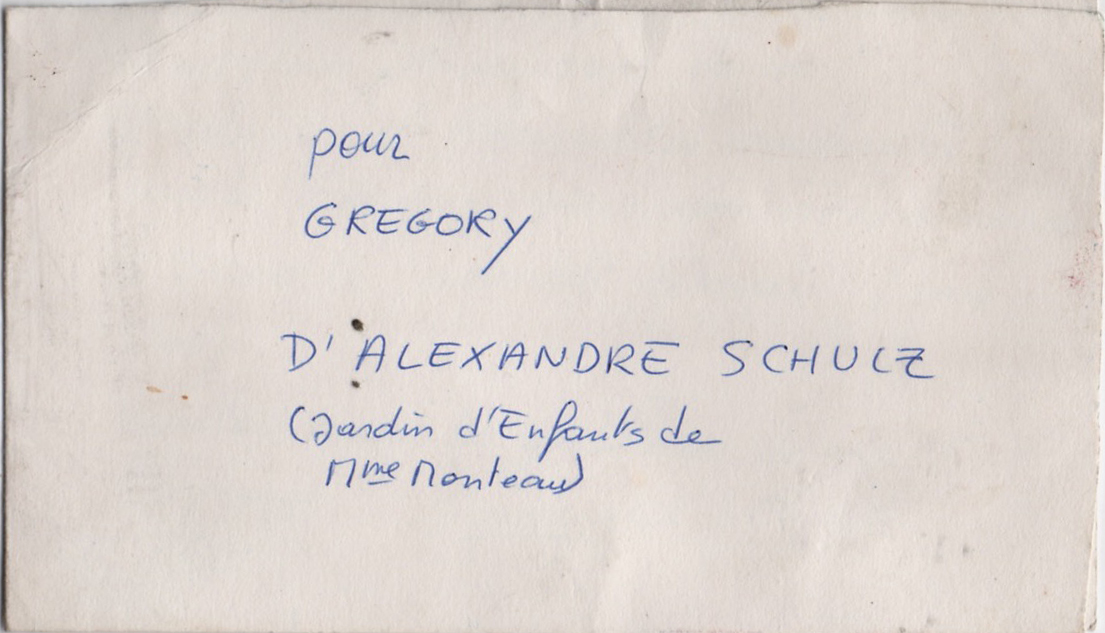 pour
GREGORY
D'ALEXANDRE SCHULZ
(Jardin d'Enfants de
Mme Monteau)